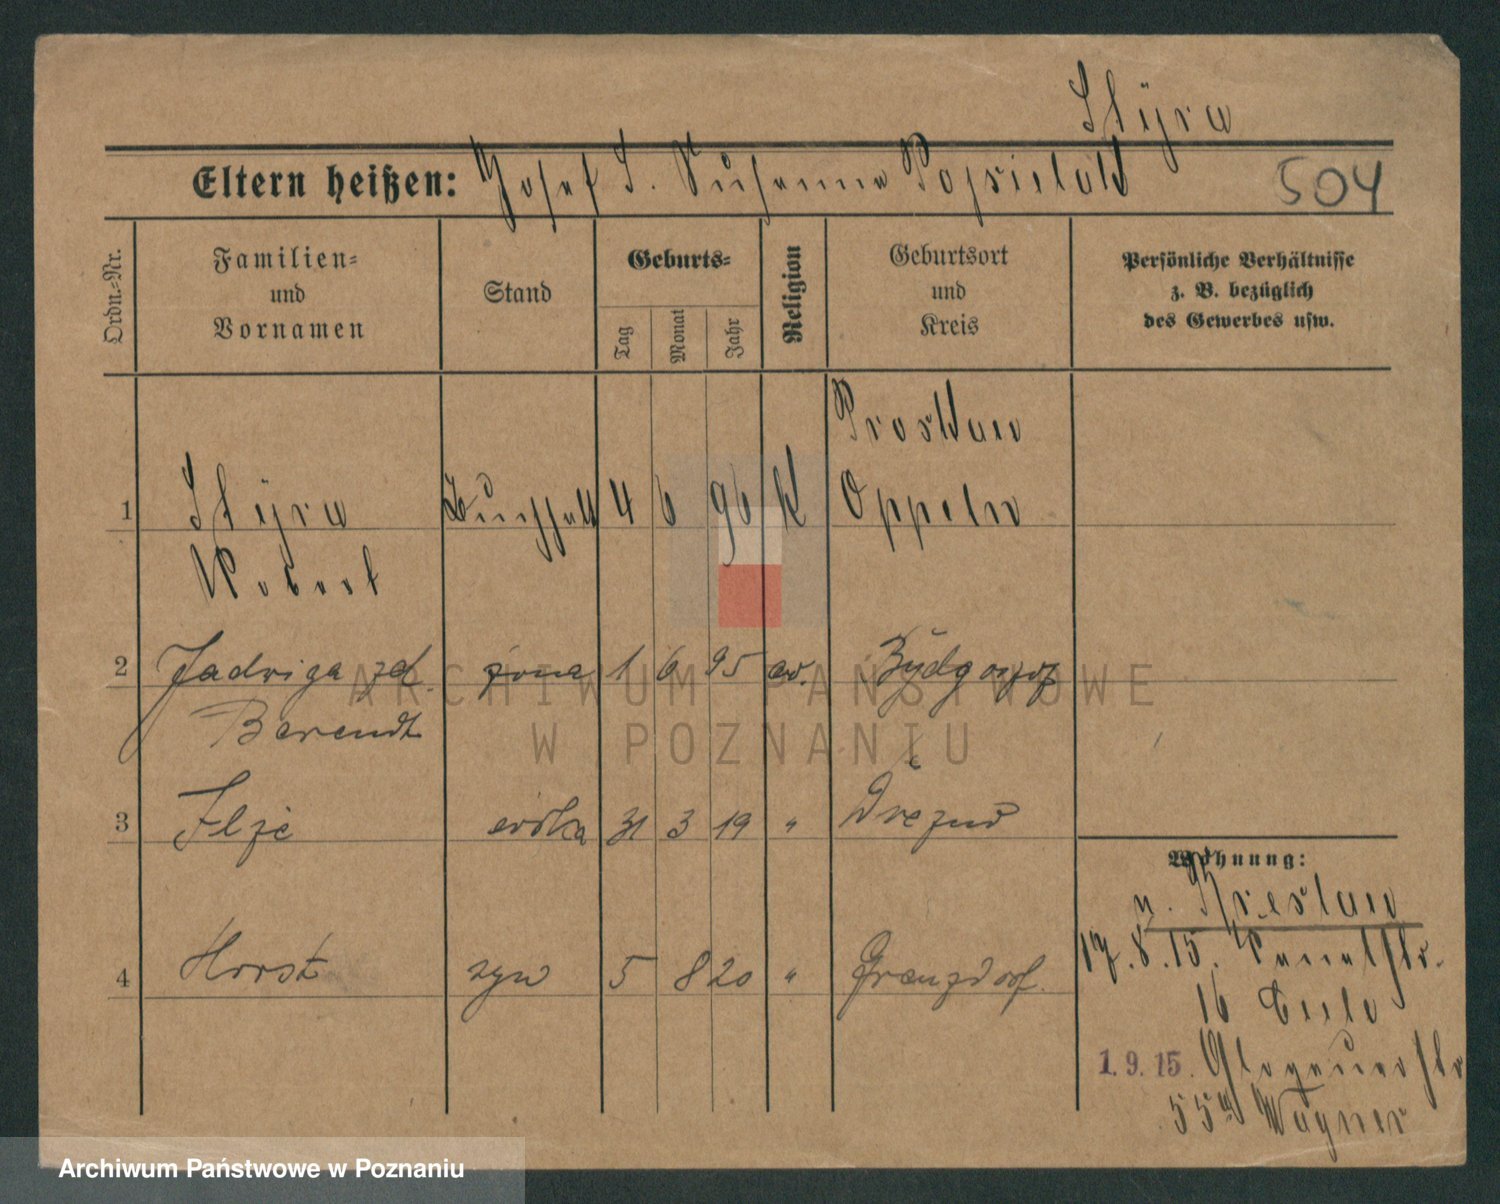 Styra
Eltern heißen: Josef S. Susanna Pospielok
504
Ordn.-Nr.
Familien- und Vornamen
Stand
Geburts-
Tag
Monat
Jahr
Religion
Geburtsort und Kreis
Persönliche Verhältnisse z. B. bezüglich des Gewerbes usw.
Proskau
1 Styra Buchhalt 4 6 96 K Oppeln
Robert
2 Jadwiga zd. żona 1 6 95 ew. Bydgoszcz
Berendt
3 Ilze córka 31 3 19 " Drezno
4 Horst syn 5 8 20 " Grenzdorf
Wohnung:
v. Breslau
17.8.15.
16
1.9.15. Glogauerstr
55 Wagner
ARCHIWUM PAŃSTWOWE
W POZNANIU
Archiwum Państwowe w Poznaniu